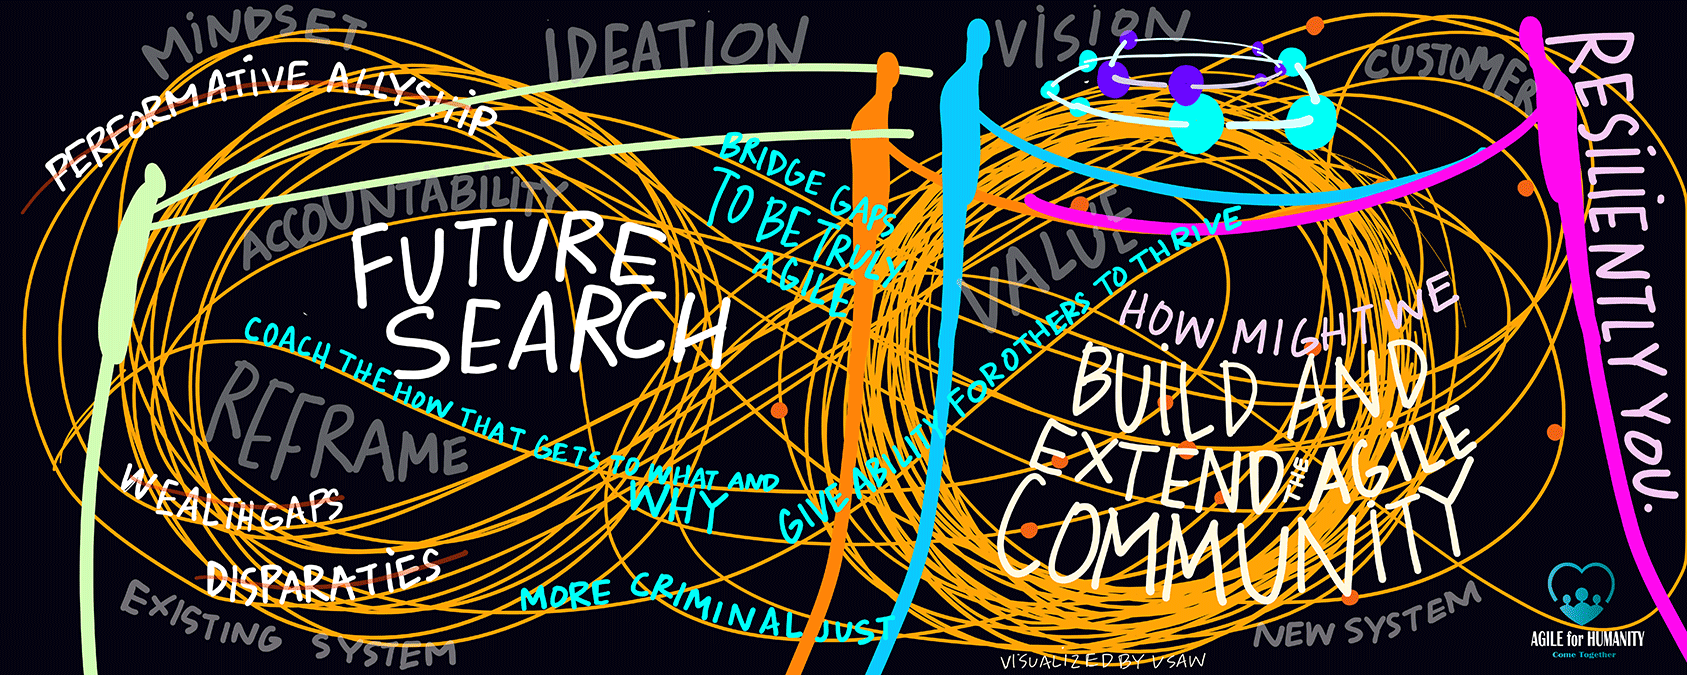 MINDSET
IDEATION
VISION
CUSTOMER
PERFORMATIVE ALLYSHIP
ACCOUNTABILITY
FUTURE
SEARCH
BRIDGE GAPS
TO BE TRULY
AGILE
VALUE
RESILIENTLY YOU.
COACH THE HOW THAT GETS TO WHAT AND
WHY
GIVE ABILITY FOR OTHERS TO THRIVE
HOW MIGHT WE
BUILD AND
EXTEND THE AGILE
COMMUNITY
REFRAME
WEALTH GAPS
DISPARATIES
EXISTING SYSTEM
MORE CRIMINAL JUST
NEW SYSTEM
VISUALIZED BY USAW
AGILE for HUMANITY
Come Together